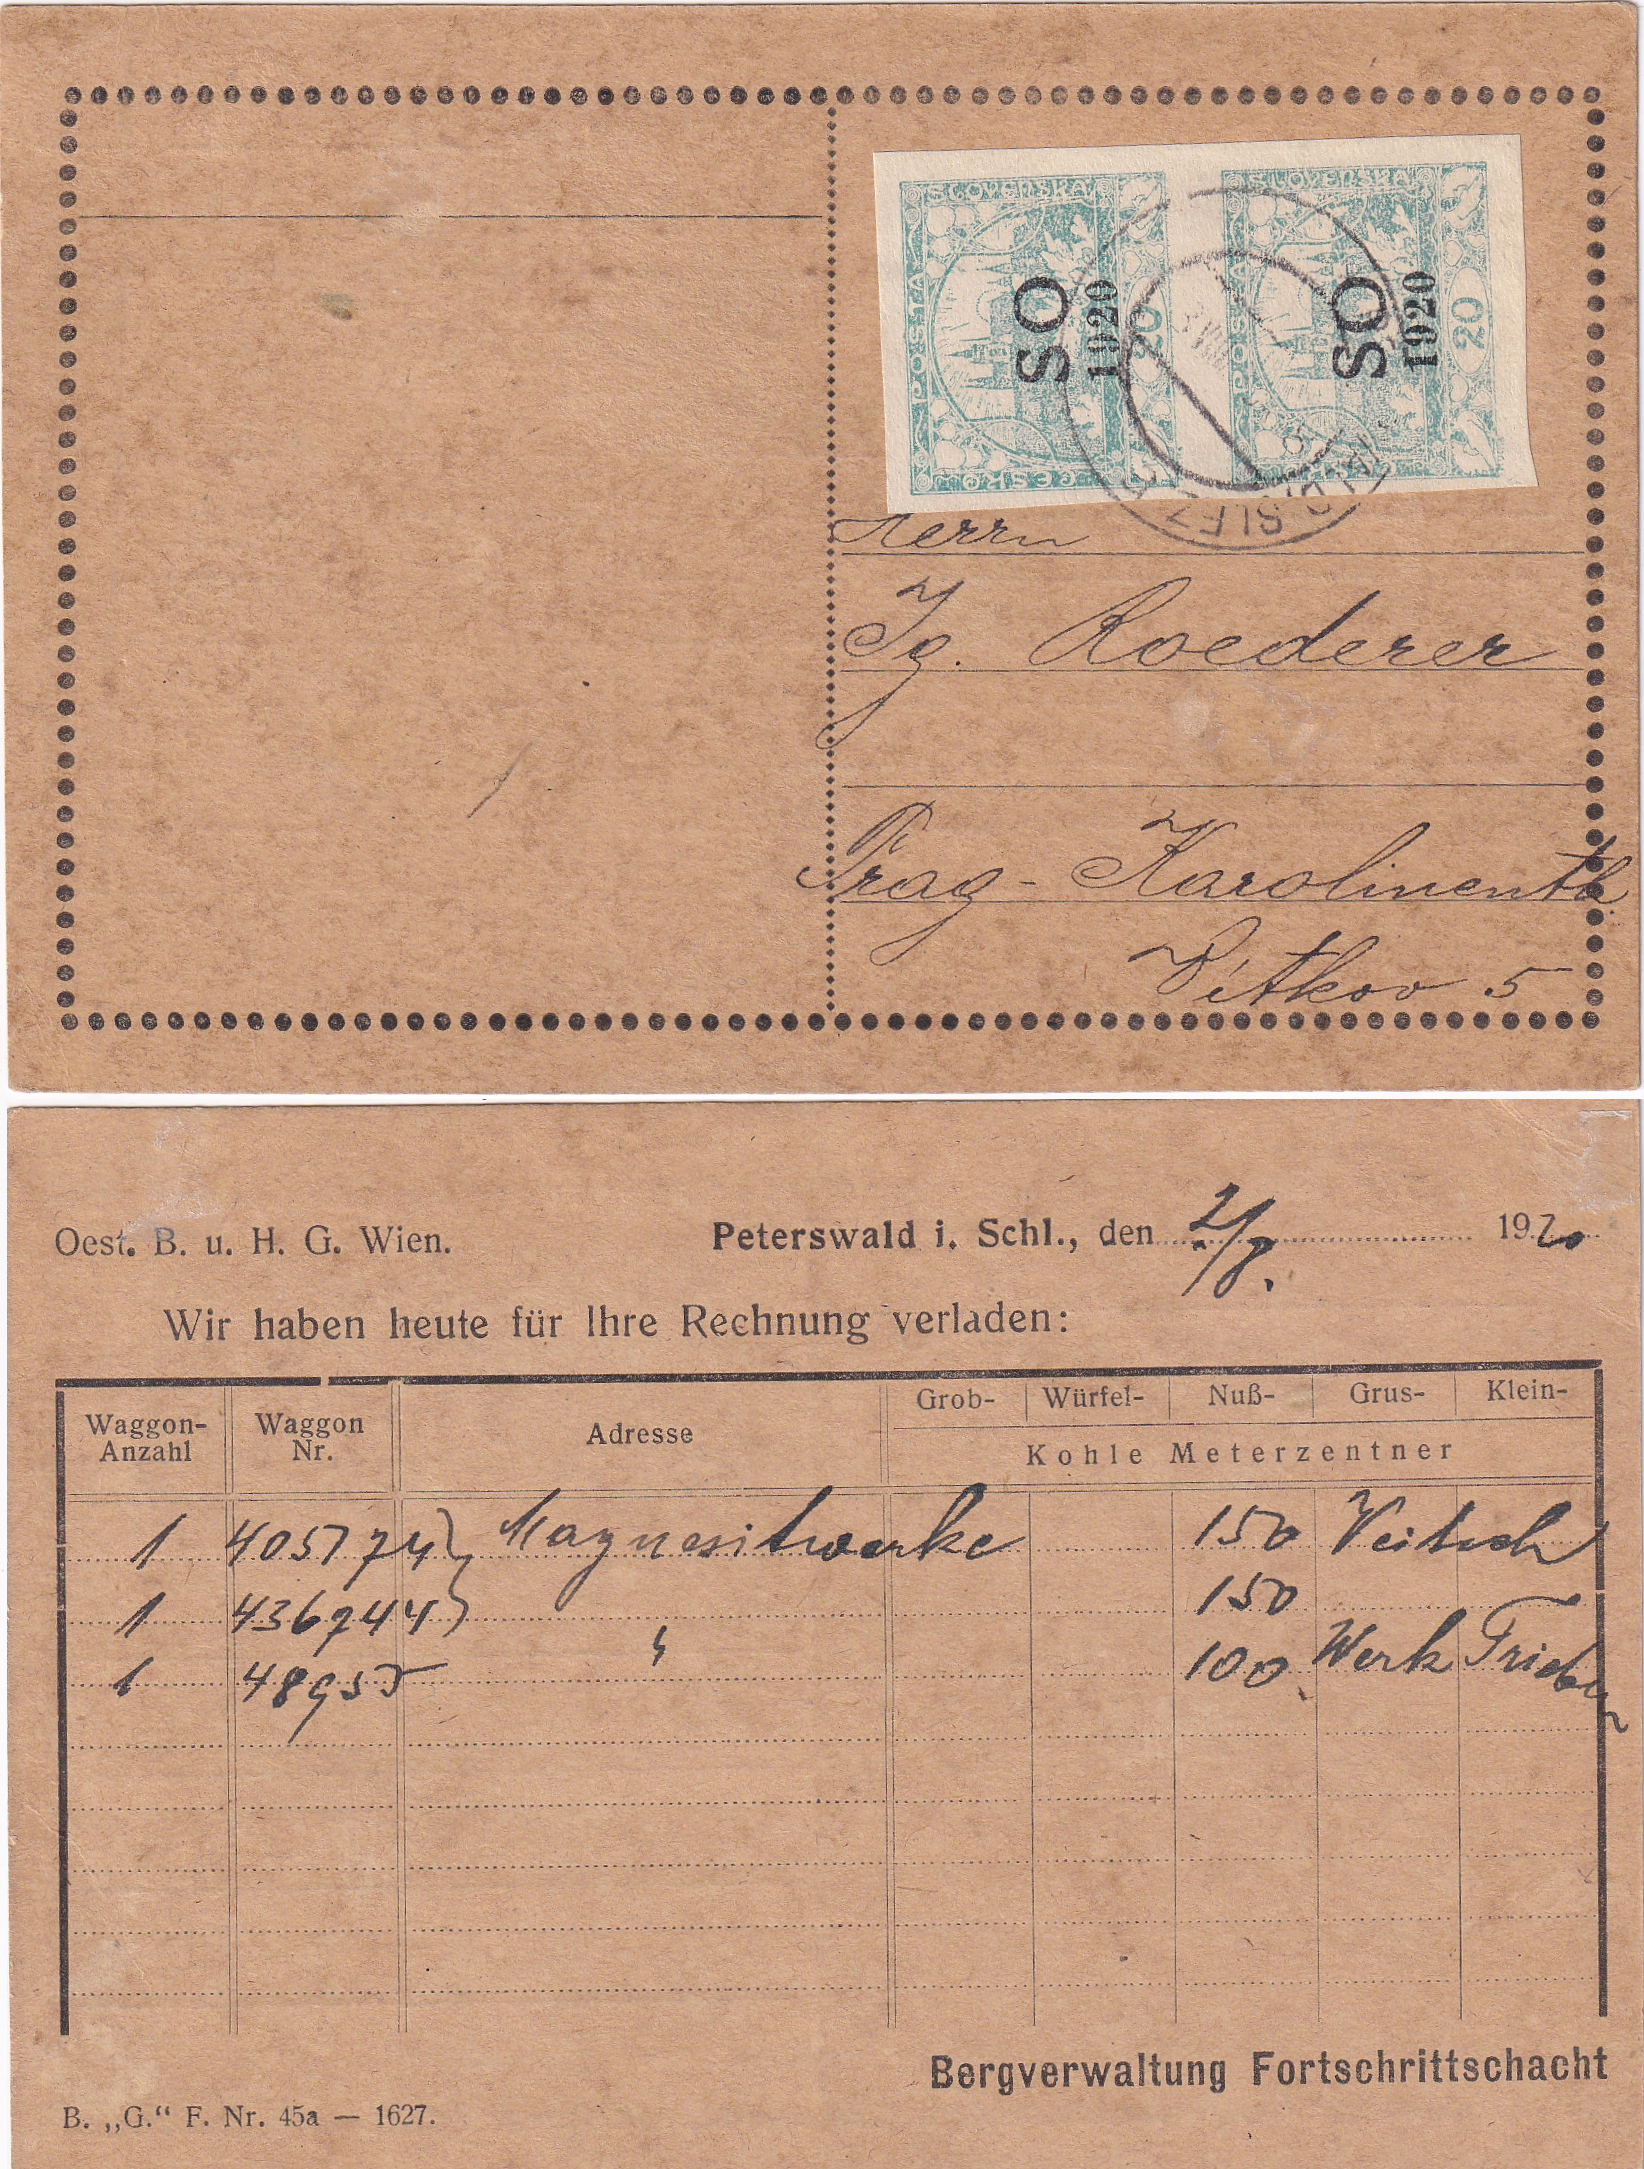 POŠTA ČESKOSLOVENSKÁ
20
SO
1920
POŠTA ČESKOSLOVENSKÁ
20
SO
1920
Herrn
Ig. Roederer
Prag - Karolinenth.
Vítkov 5
Oest. B. u. H. G. Wien.
Peterswald i. Schl., den 2/8. 1920
Wir haben heute für Ihre Rechnung verladen:
Waggon-Anzahl Waggon Nr. Adresse Grob- Würfel- Nuß- Grus- Klein-
Kohle Meterzentner
1 405774 Magnesitwerke 150 Veitsch
1 436744 150
1 48955 " 100 Werk Trieben
Bergverwaltung Fortschrittschacht
B. „G.“ F. Nr. 45a — 1627.